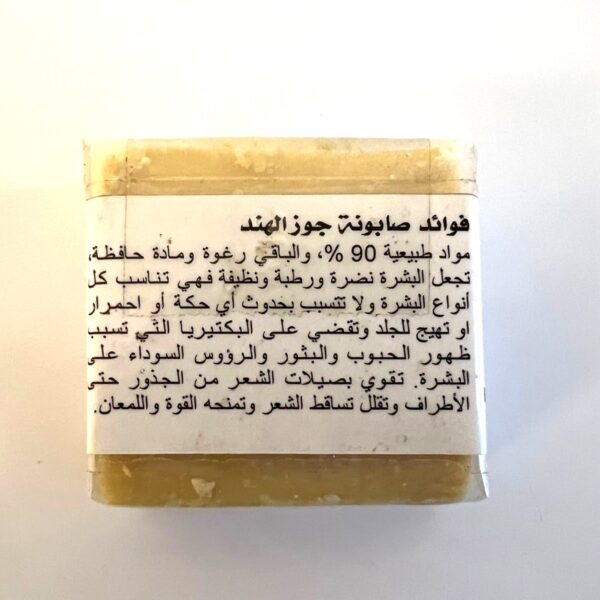 فوائد صابونة جوز الهند
مواد طبيعية 90 %، والباقي رغوة ومادة حافظة،
تجعل البشرة نضرة ورطبة ونظيفة فهي تناسب كل
أنواع البشرة ولا تتسبب بحدوث أي حكة أو احمرار
او تهيج للجلد وتقضي على البكتيريا التي تسبب
ظهور الحبوب والبثور والرؤوس السوداء على
البشرة. تقوي بصيلات الشعر من الجذور حتى
الأطراف وتقلل تساقط الشعر وتمنحه القوة واللمعان.